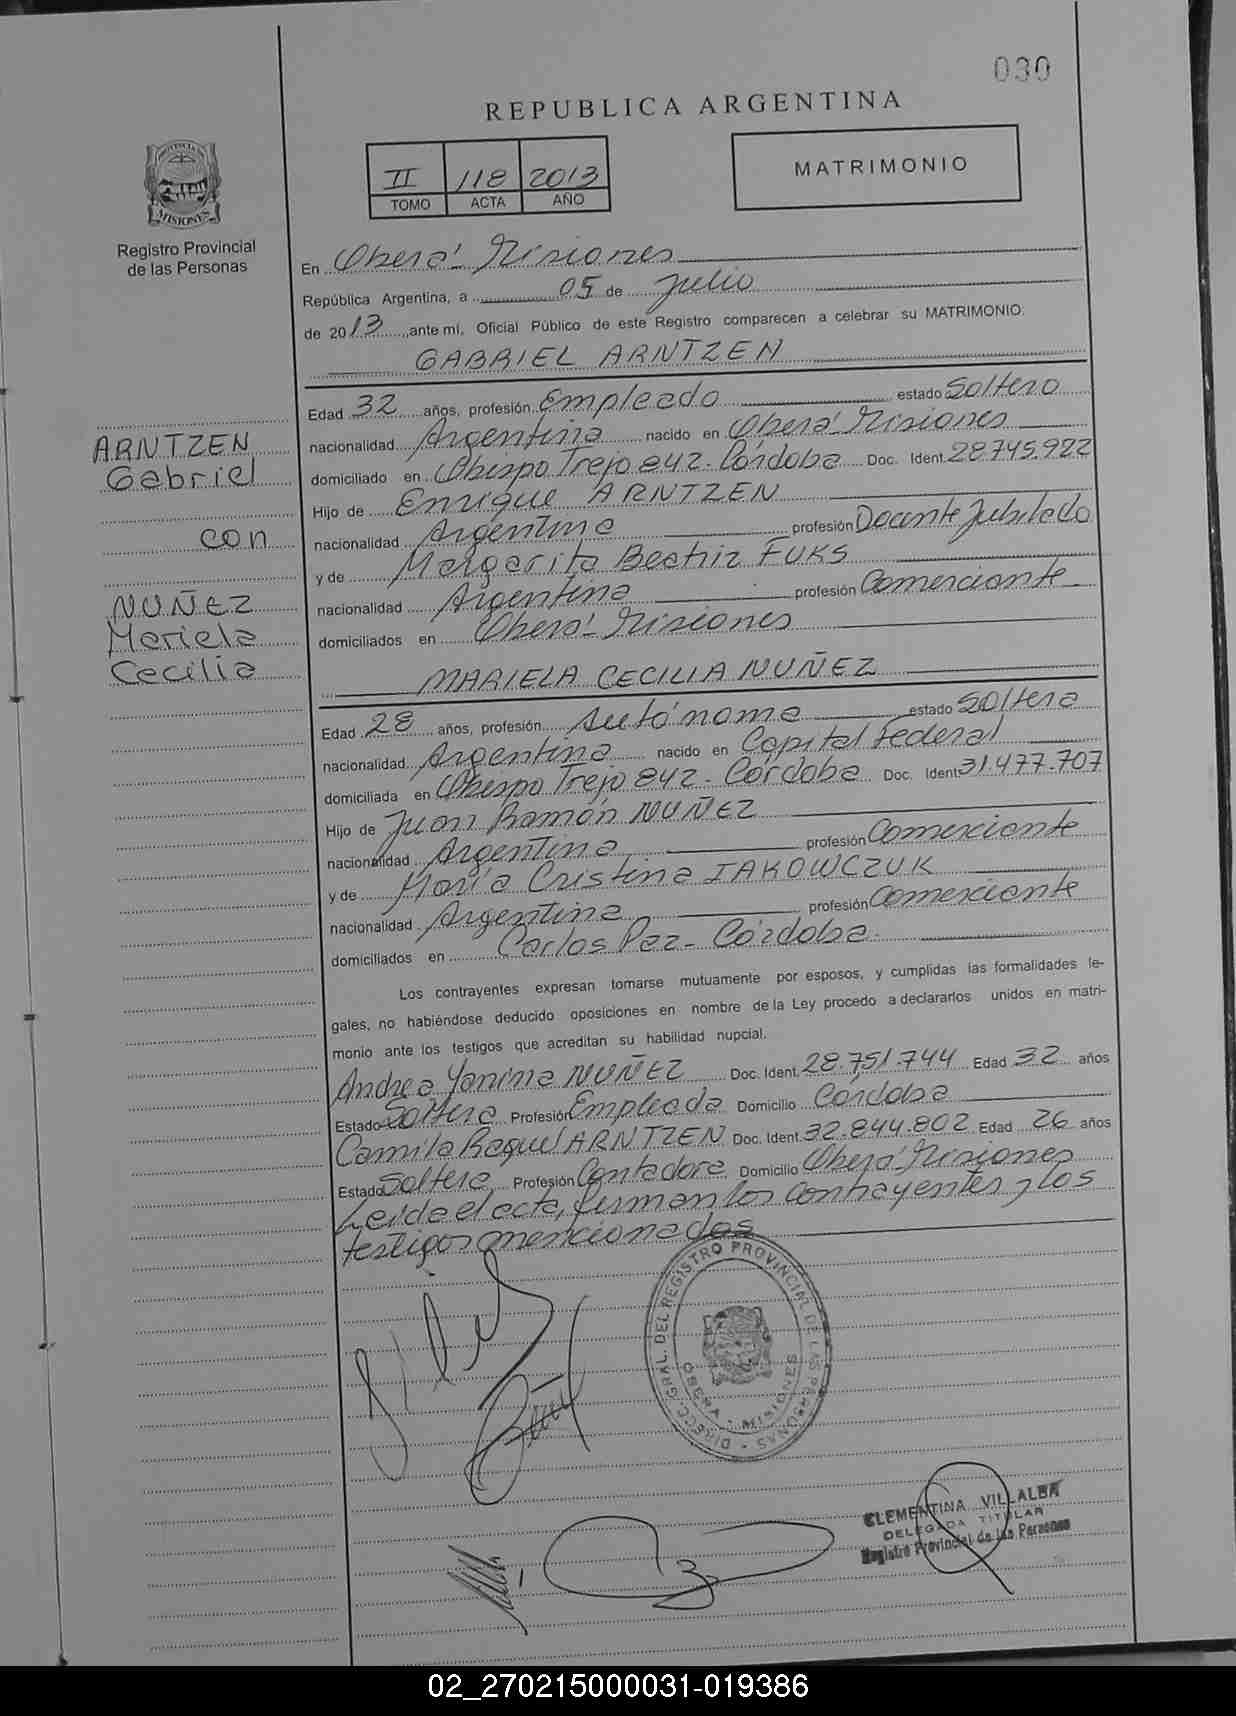 030
REPUBLICA ARGENTINA
II 118 2013
TOMO ACTA AÑO
MATRIMONIO
PROVINCIA DE
MISIONES
Registro Provincial
de las Personas
ARNTZEN
Gabriel
con
NUÑEZ
Mariela
Cecilia
En Oberá - Misiones
República Argentina, a 05 de Julio
de 2013 ante mí, Oficial Público de este Registro comparecen a celebrar su MATRIMONIO:
GABRIEL ARNTZEN
Edad 32 años, profesión Empleado estado Soltero
nacionalidad Argentina nacido en Oberá - Misiones
domiciliado en Obispo Trejo 842 - Córdoba Doc. Ident. 28.745.922
Hijo de Enrique ARNTZEN
nacionalidad Argentina profesión Docente Jubilado
y de Margarita Beatriz FUKS
nacionalidad Argentina profesión Comerciante
domiciliados en Oberá - Misiones
MARIELA CECILIA NUÑEZ
Edad 28 años, profesión Autónoma estado Soltera
nacionalidad Argentina nacido en Capital Federal
domiciliada en Obispo Trejo 842 - Córdoba Doc. Ident 31.477.707
Hijo de Juan Ramón NUÑEZ
nacionalidad Argentina profesión Comerciante
y de María Cristina IAKOWCZUK
nacionalidad Argentina profesión Comerciante
domiciliados en Carlos Paz - Córdoba
Los contrayentes expresan tomarse mutuamente por esposos, y cumplidas las formalidades le-
gales, no habiéndose deducido oposiciones en nombre de la Ley procedo a declararlos unidos en matri-
monio ante los testigos que acreditan su habilidad nupcial.
Andrea Yanina NUÑEZ Doc. Ident. 28.751.744 Edad 32 años
Estado Soltera Profesión Empleada Domicilio Córdoba
Camila Raquel ARNTZEN Doc. Ident. 32.844.802 Edad 26 años
Estado Soltera Profesión Contadora Domicilio Oberá - Misiones
Leída el acta, firman los contrayentes y los
testigos mencionados
DIRECC. GRAL. DEL REGISTRO PROVINCIAL DE LAS PERSONAS
OBERA - MISIONES
CLEMENTINA VILLALBA
DELEGADA TITULAR
Registro Provincial de las Personas
02_270215000031-019386